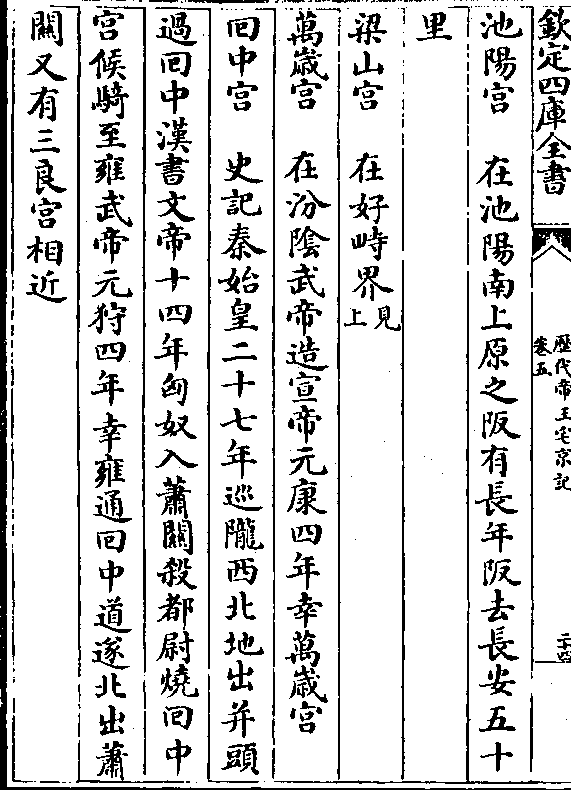 欽定四庫全書
歷代帝王宅京記
卷五
二十四
池陽宮　在池陽南上原之阪有長年阪去長安五十
里
梁山宮　在好畤界見上
萬歲宮　在汾陰武帝造宣帝元康四年幸萬歲宮
回中宮　史記秦始皇二十七年巡隴西北地出并頭
過回中漢書文帝十四年匈奴入蕭關殺都尉燒回中
宮候騎至雍武帝元狩四年幸雍通回中道遂北出蕭
關又有三良宮相近